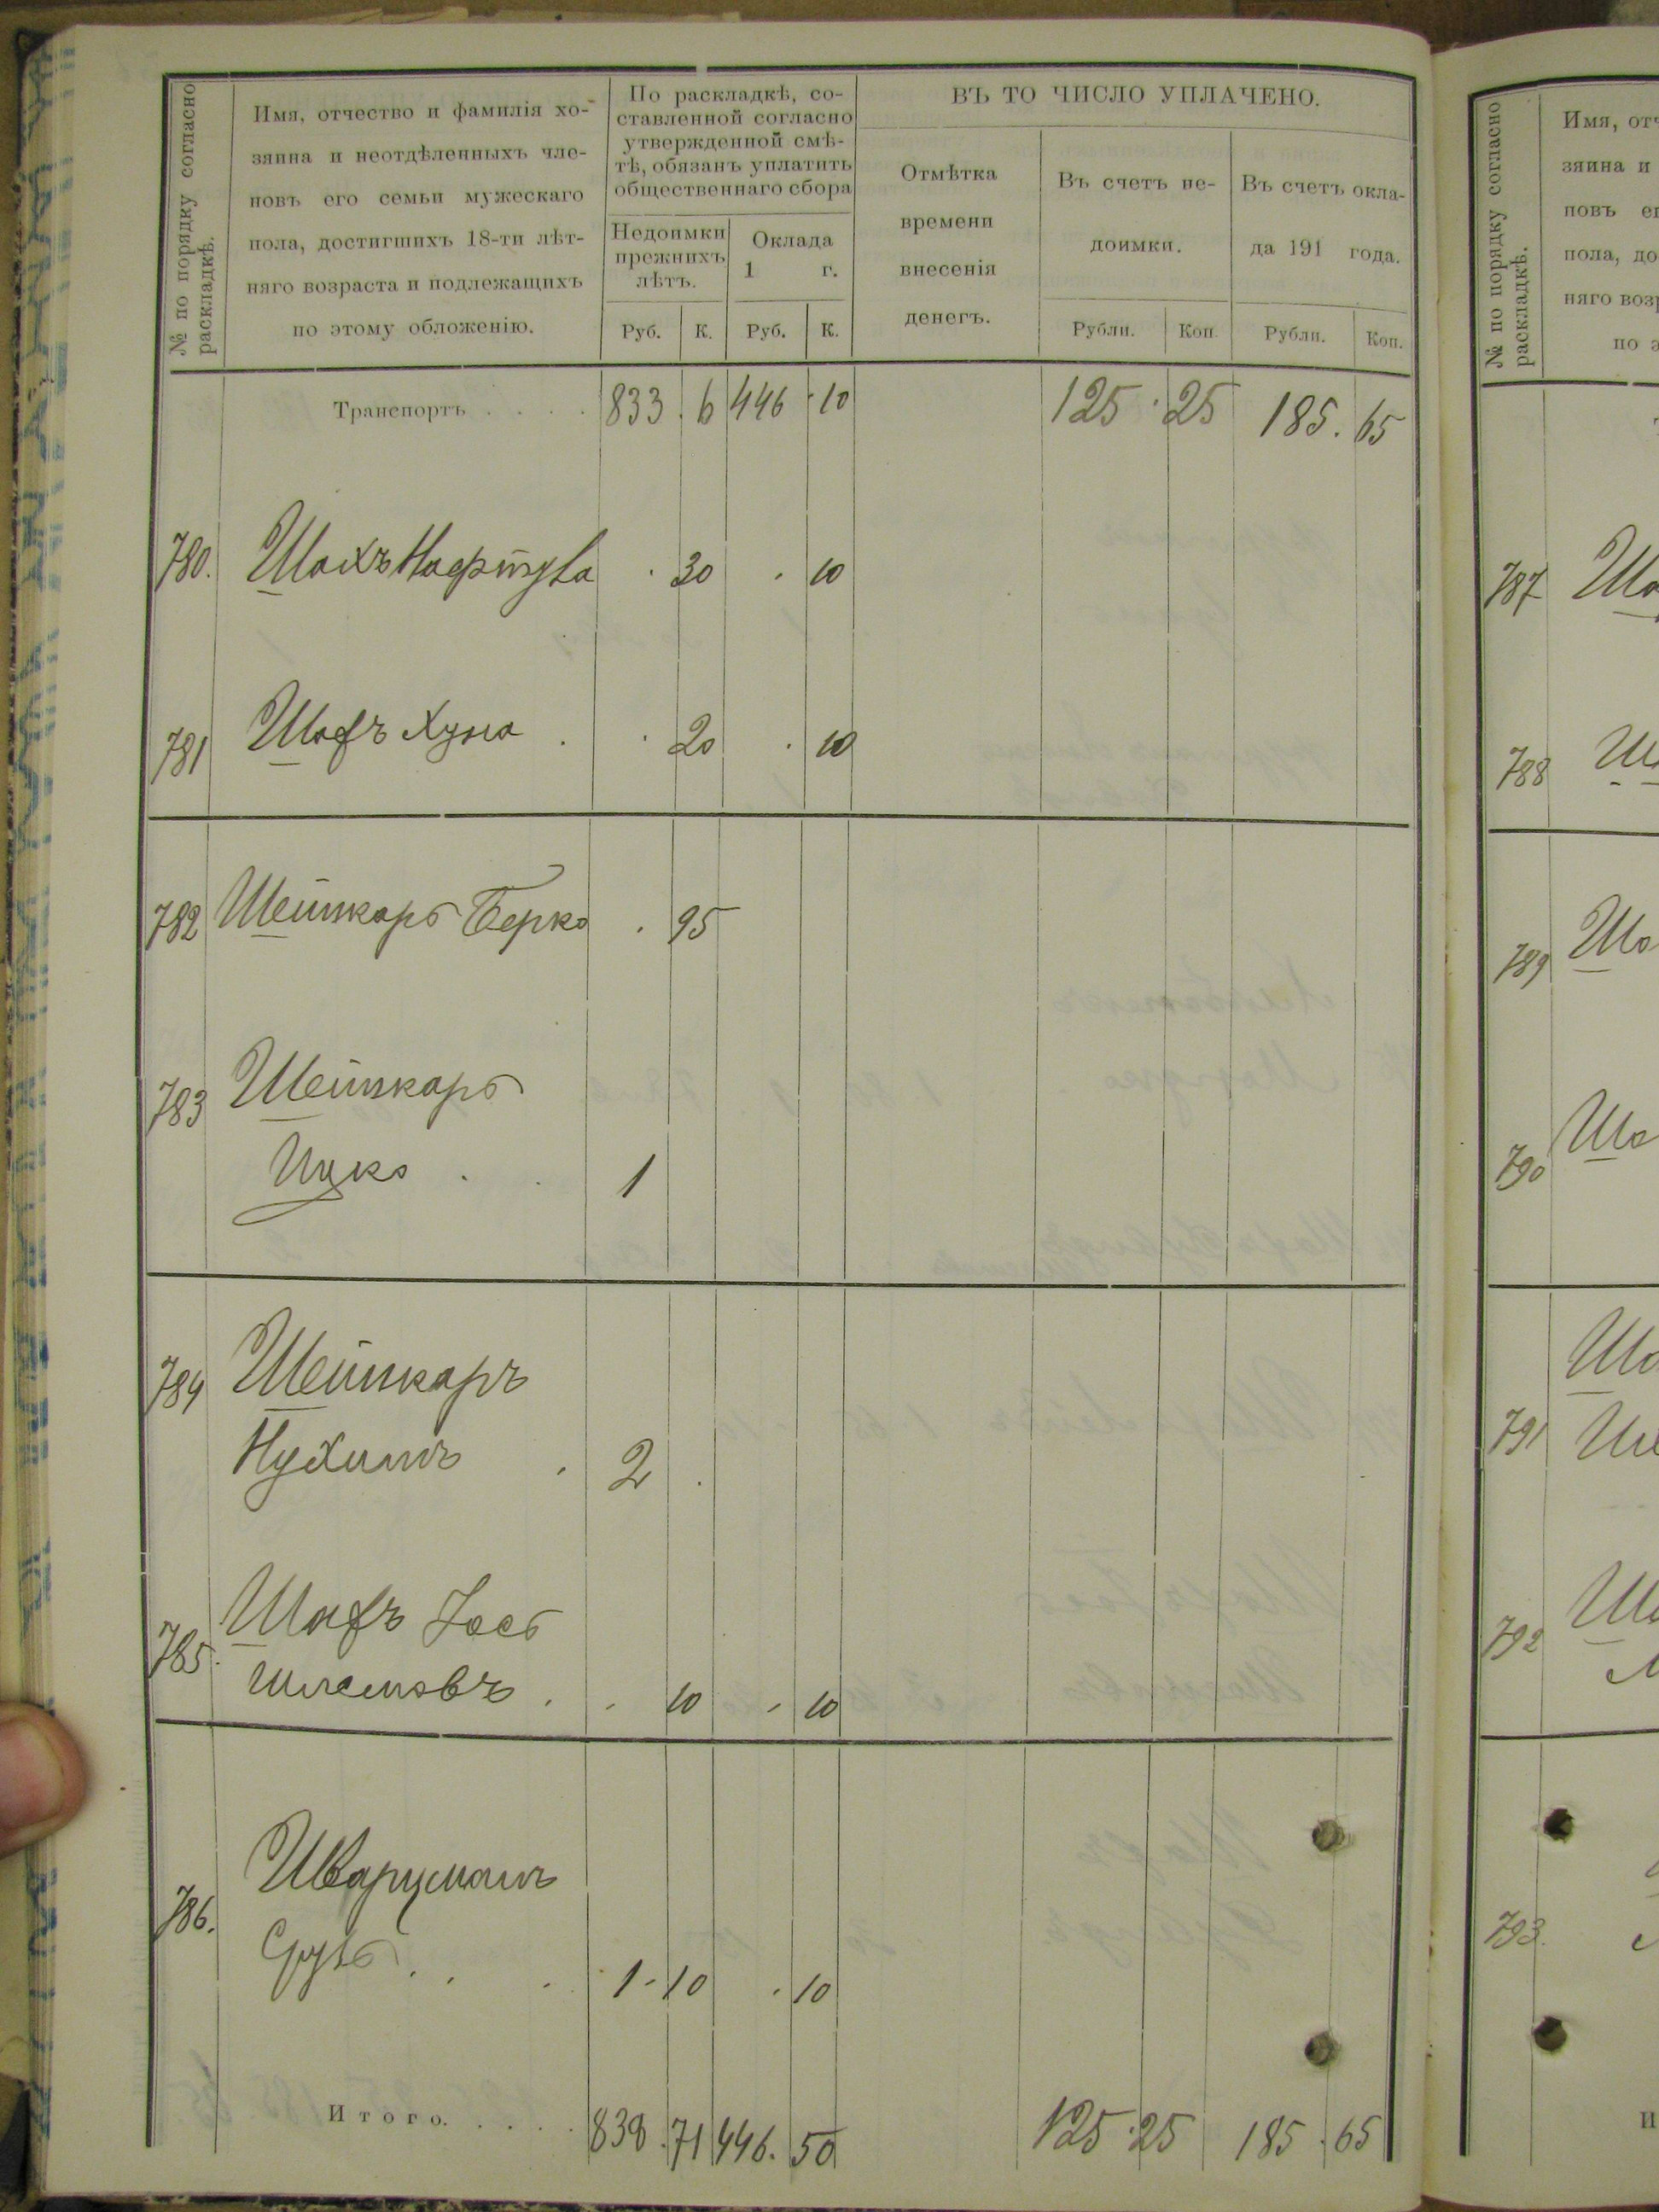 № по порядку согласно
раскладкѣ.
Имя, отчество и фамилія хо-
зяина и неотдѣленныхъ чле-
новъ его семьи мужескаго
пола, достигшихъ 18-ти лѣт-
няго возраста и подлежащихъ
по этому обложенію.
По раскладкѣ, со-
ставленной согласно
утвержденной смѣ-
тѣ, обязанъ уплатить
общественнаго сбора
Недоимки
прежнихъ
лѣтъ.
Оклада
1 г.
Руб. К. Руб. К.
ВЪ ТО ЧИСЛО УПЛАЧЕНО.
Отмѣтка
времени
внесенія
денегъ.
Въ счетъ не-
доимки.
Въ счетъ окла-
да 191 года.
Рубли. Коп. Рубли. Коп.
Транспортъ . . . . 833 . 6 446 . 10 125 . 25 185 . 65
780. Шахъ Нафтула . 30 . 10
781 Шафъ Хуна . . 20 . 10
782 Шейнкарь Берко . 95
783 Шейнкарь
Ицко . . 1
784 Шейнкаръ
Нухимъ . 2 .
785. Шафъ Іось
Шлемовъ . . 10 . 10
786. Шварцманъ
Сруль . . . 1 . 10 . 10
Итого. . . . . 838 . 71 446 . 50 125 . 25 185 . 65
№ по порядку согласно
раскладкѣ.
Имя, отч
зяина и
новъ ег
пола, до
няго возр
по э
787 Ша
788 Ш
789 Ша
790 Ша
791 Ша
792 Ш
793.
И